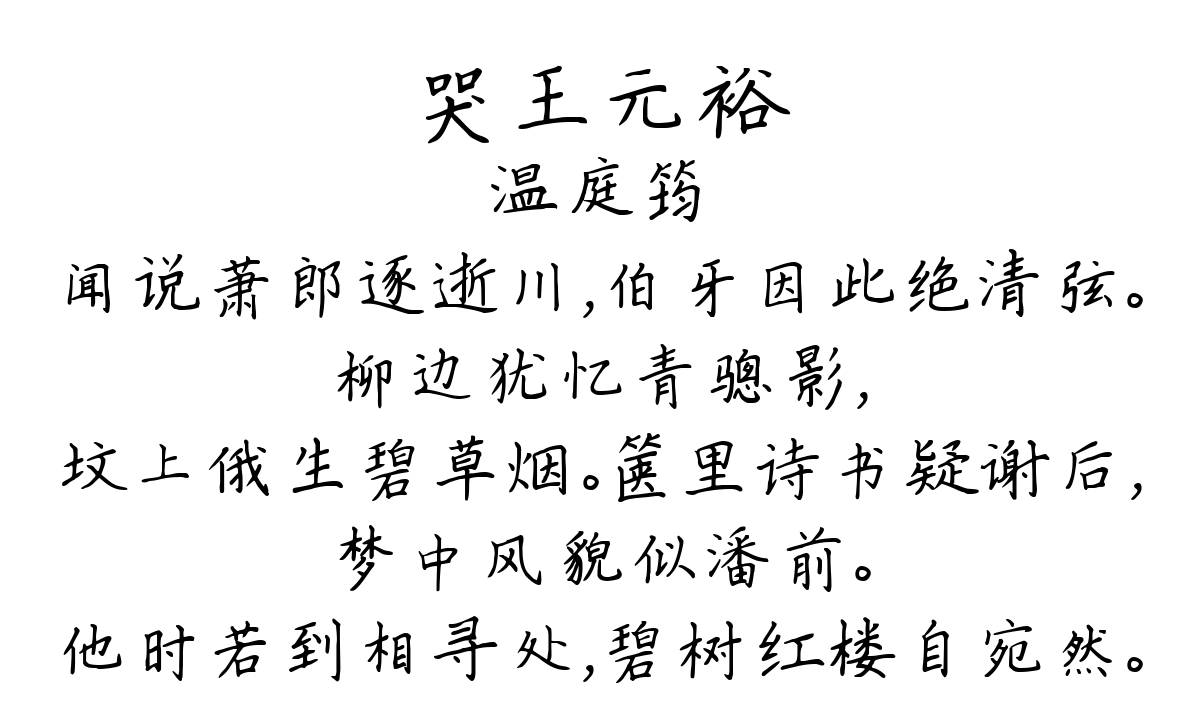 哭王元裕
温庭筠
闻说萧郎逐逝川,伯牙因此绝清弦。
柳边犹忆青骢影,
坟上俄生碧草烟。箧里诗书疑谢后,
梦中风貌似潘前。
他时若到相寻处,碧树红楼自宛然。